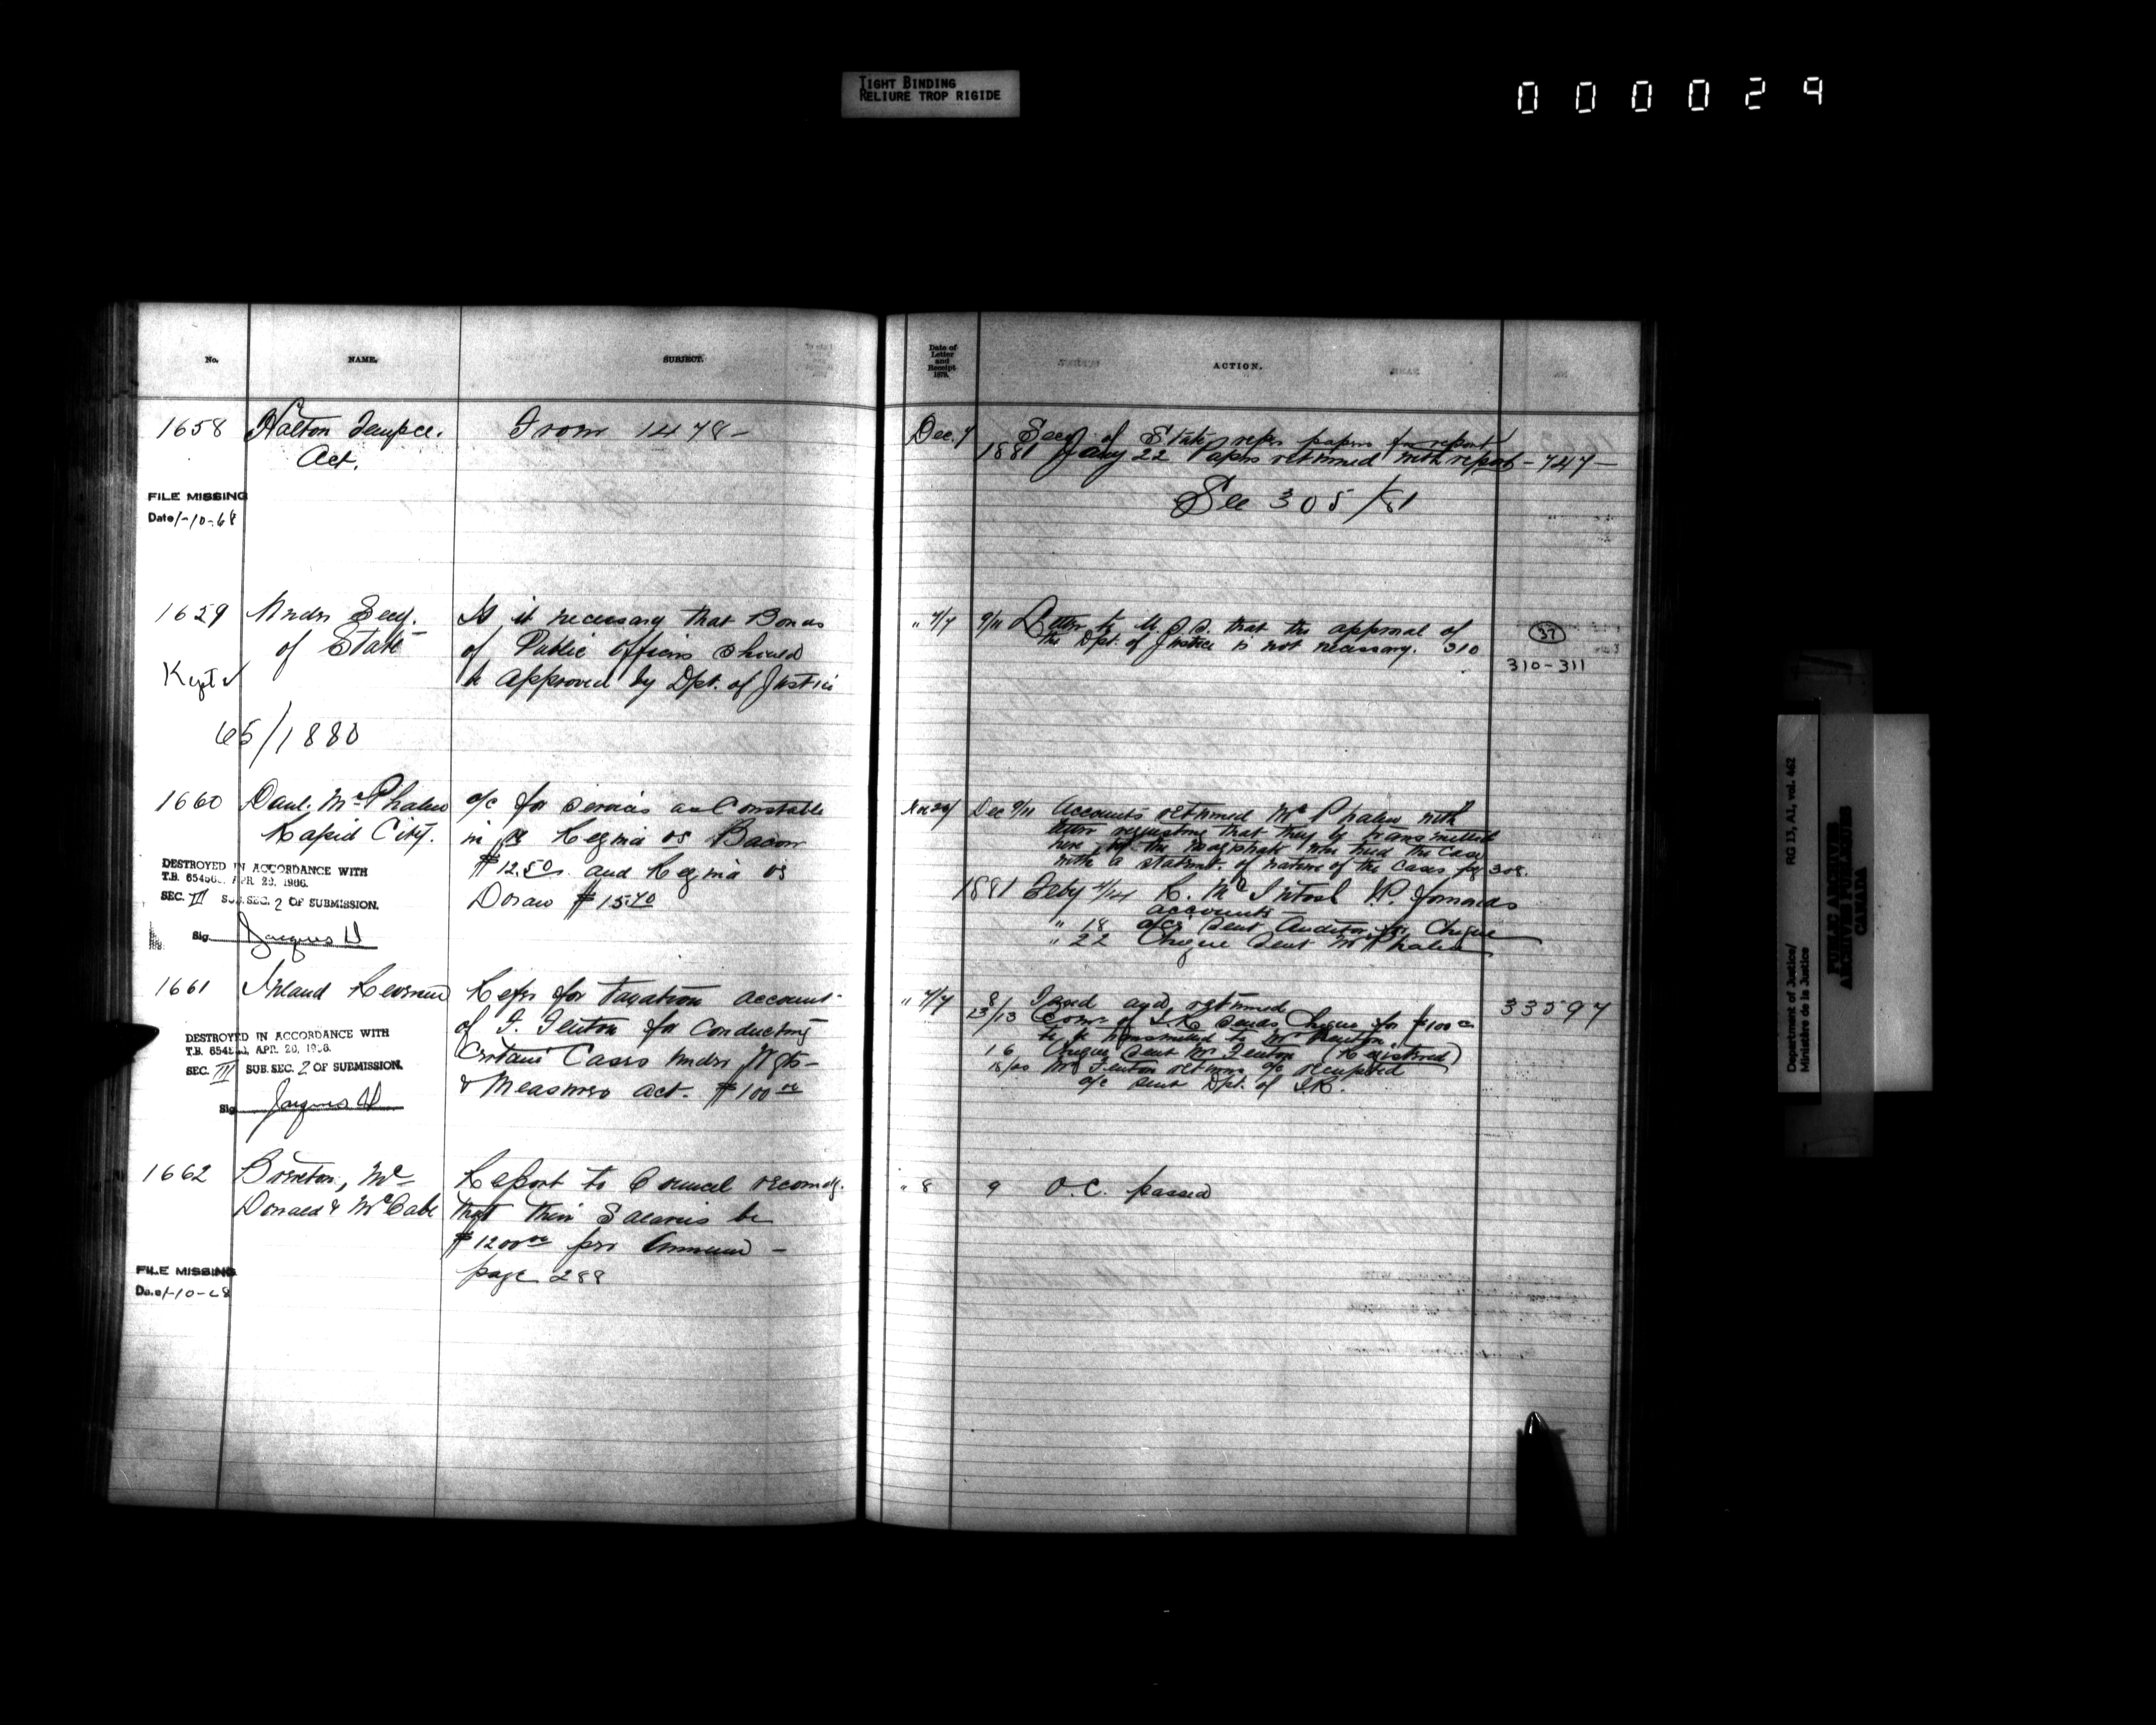 TIGHT BINDING
RELIURE TROP RIGIDE
000029
No. NAME. SUBJECT.
Date of Letter and Receipt 1879. ACTION.
1658 Halton Tempce. From 1478 -
Act.
FILE MISSING
Date 1-10-68
Dec. 7 Secy of State refers papers for report
1881 Jany 22 Papers returned with report - 747 -
See 305/81
1659 Under Secy. Is it necessary that Bonds
of State of Public Officers should
Kept be approved by Dpt. of Justice
65/1880
" 7/7 9/11 Letter to U.S.S. that the approval of
the Dpt. of Justice is not necessary. 310
37
310-311
1660 Danl. McPhalen a/c for services as Constable
Rapid City. in re Regina vs Bacon
$12.50 and Regina vs
Doran $15.70
DESTROYED IN ACCORDANCE WITH
T.B. APR. 20, 1966.
SEC. III SUB. SEC. 2 OF SUBMISSION.
Sig. Jacques
Dec 9/11 Accounts returned McPhalen with
letter requesting that they be transmitted
here by the magistrate who tried the case
with a statmt. of nature of the cases pg 308.
1881 Feby 4/14 R. McIntosh J.P. forwards
accounts -
" 18 a/cs sent Auditor for Cheque
" 22 Cheque sent McPhalen
1661 Inland Revenue Refers for taxation account
of F. Fenton for conducting
Certain Cases under Wgts -
& Measures Act. $100 00
DESTROYED IN ACCORDANCE WITH
T.B. APR. 20,
SEC. III SUB. SEC. 2 OF SUBMISSION.
Sig. Jacques
" 7/7 8 Taxed and returned
13/13 Comr of I.R. sends Cheque for $100 00
to be transmitted to Mr Fenton.
16 Cheque sent Mr Fenton (Registered)
18/20 Mr Fenton returns a/c receipted
a/c sent Dpt. of I.R.
33597
1662 Brereton, Mc- Report to Council recomdg.
Donald & McCabe that their Salaries be
$1200 00 per Annum -
page 288
FILE MISSING
Date 1-10-68
" 8 9 O.C. passed
Department of Justice/
Ministère de la Justice
RG 13, A1, vol. 462
PUBLIC ARCHIVES
ARCHIVES PUBLIQUES
CANADA